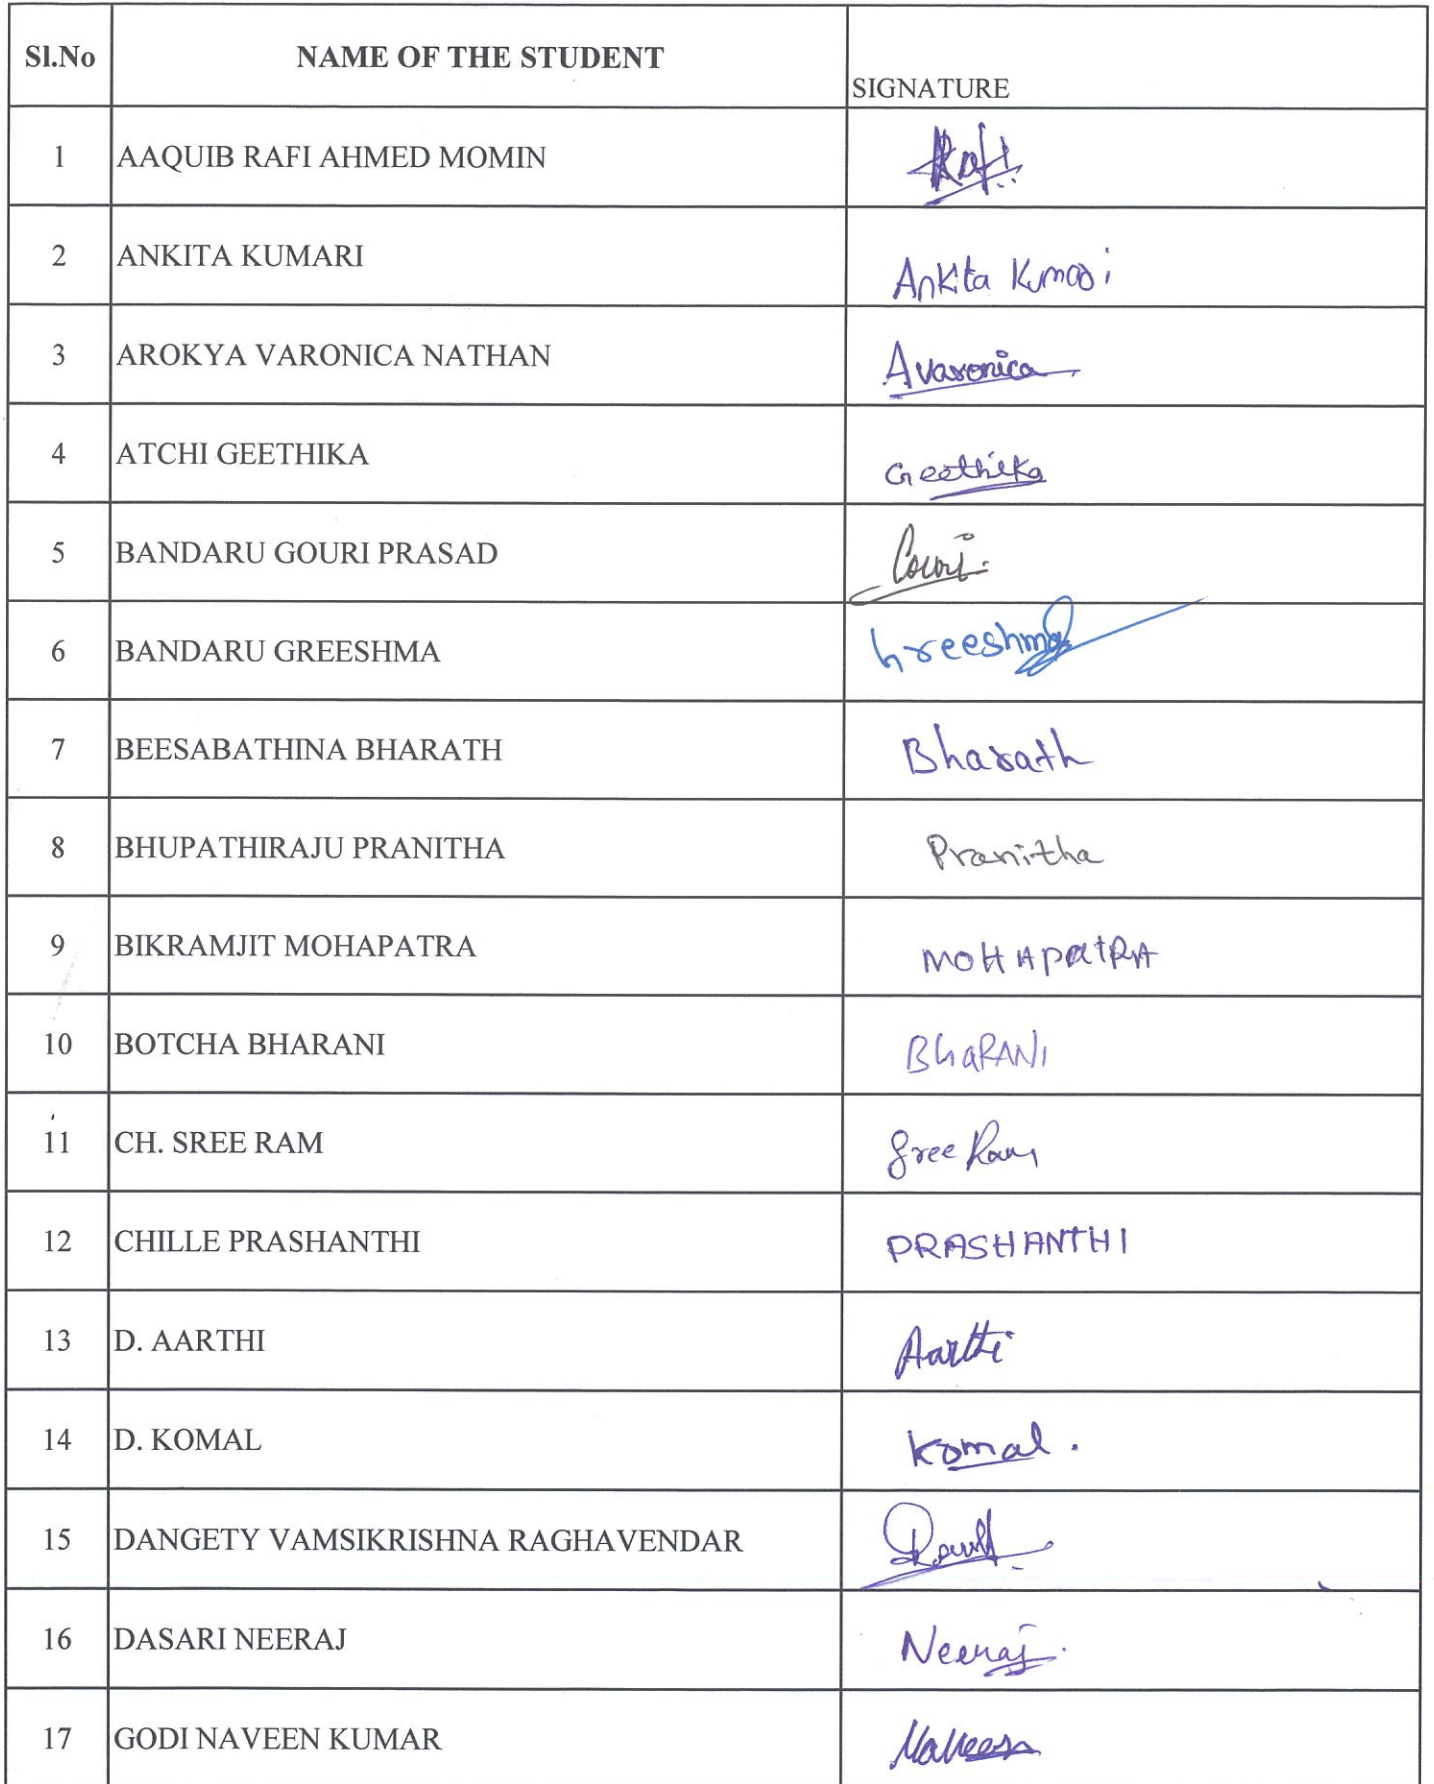 Sl.No NAME OF THE STUDENT SIGNATURE
1 AAQUIB RAFI AHMED MOMIN Rafi
2 ANKITA KUMARI Ankita Kumari
3 AROKYA VARONICA NATHAN A varonica
4 ATCHI GEETHIKA Geethika
5 BANDARU GOURI PRASAD Gouri
6 BANDARU GREESHMA Greeshma
7 BEESABATHINA BHARATH Bharath
8 BHUPATHIRAJU PRANITHA Pranitha
9 BIKRAMJIT MOHAPATRA MOHApatRA
10 BOTCHA BHARANI BhaRANI
11 CH. SREE RAM Sree Ram
12 CHILLE PRASHANTHI PRASHANTHI
13 D. AARTHI Aarthi
14 D. KOMAL Komal.
15 DANGETY VAMSIKRISHNA RAGHAVENDAR
16 DASARI NEERAJ Neeraj.
17 GODI NAVEEN KUMAR Naveen